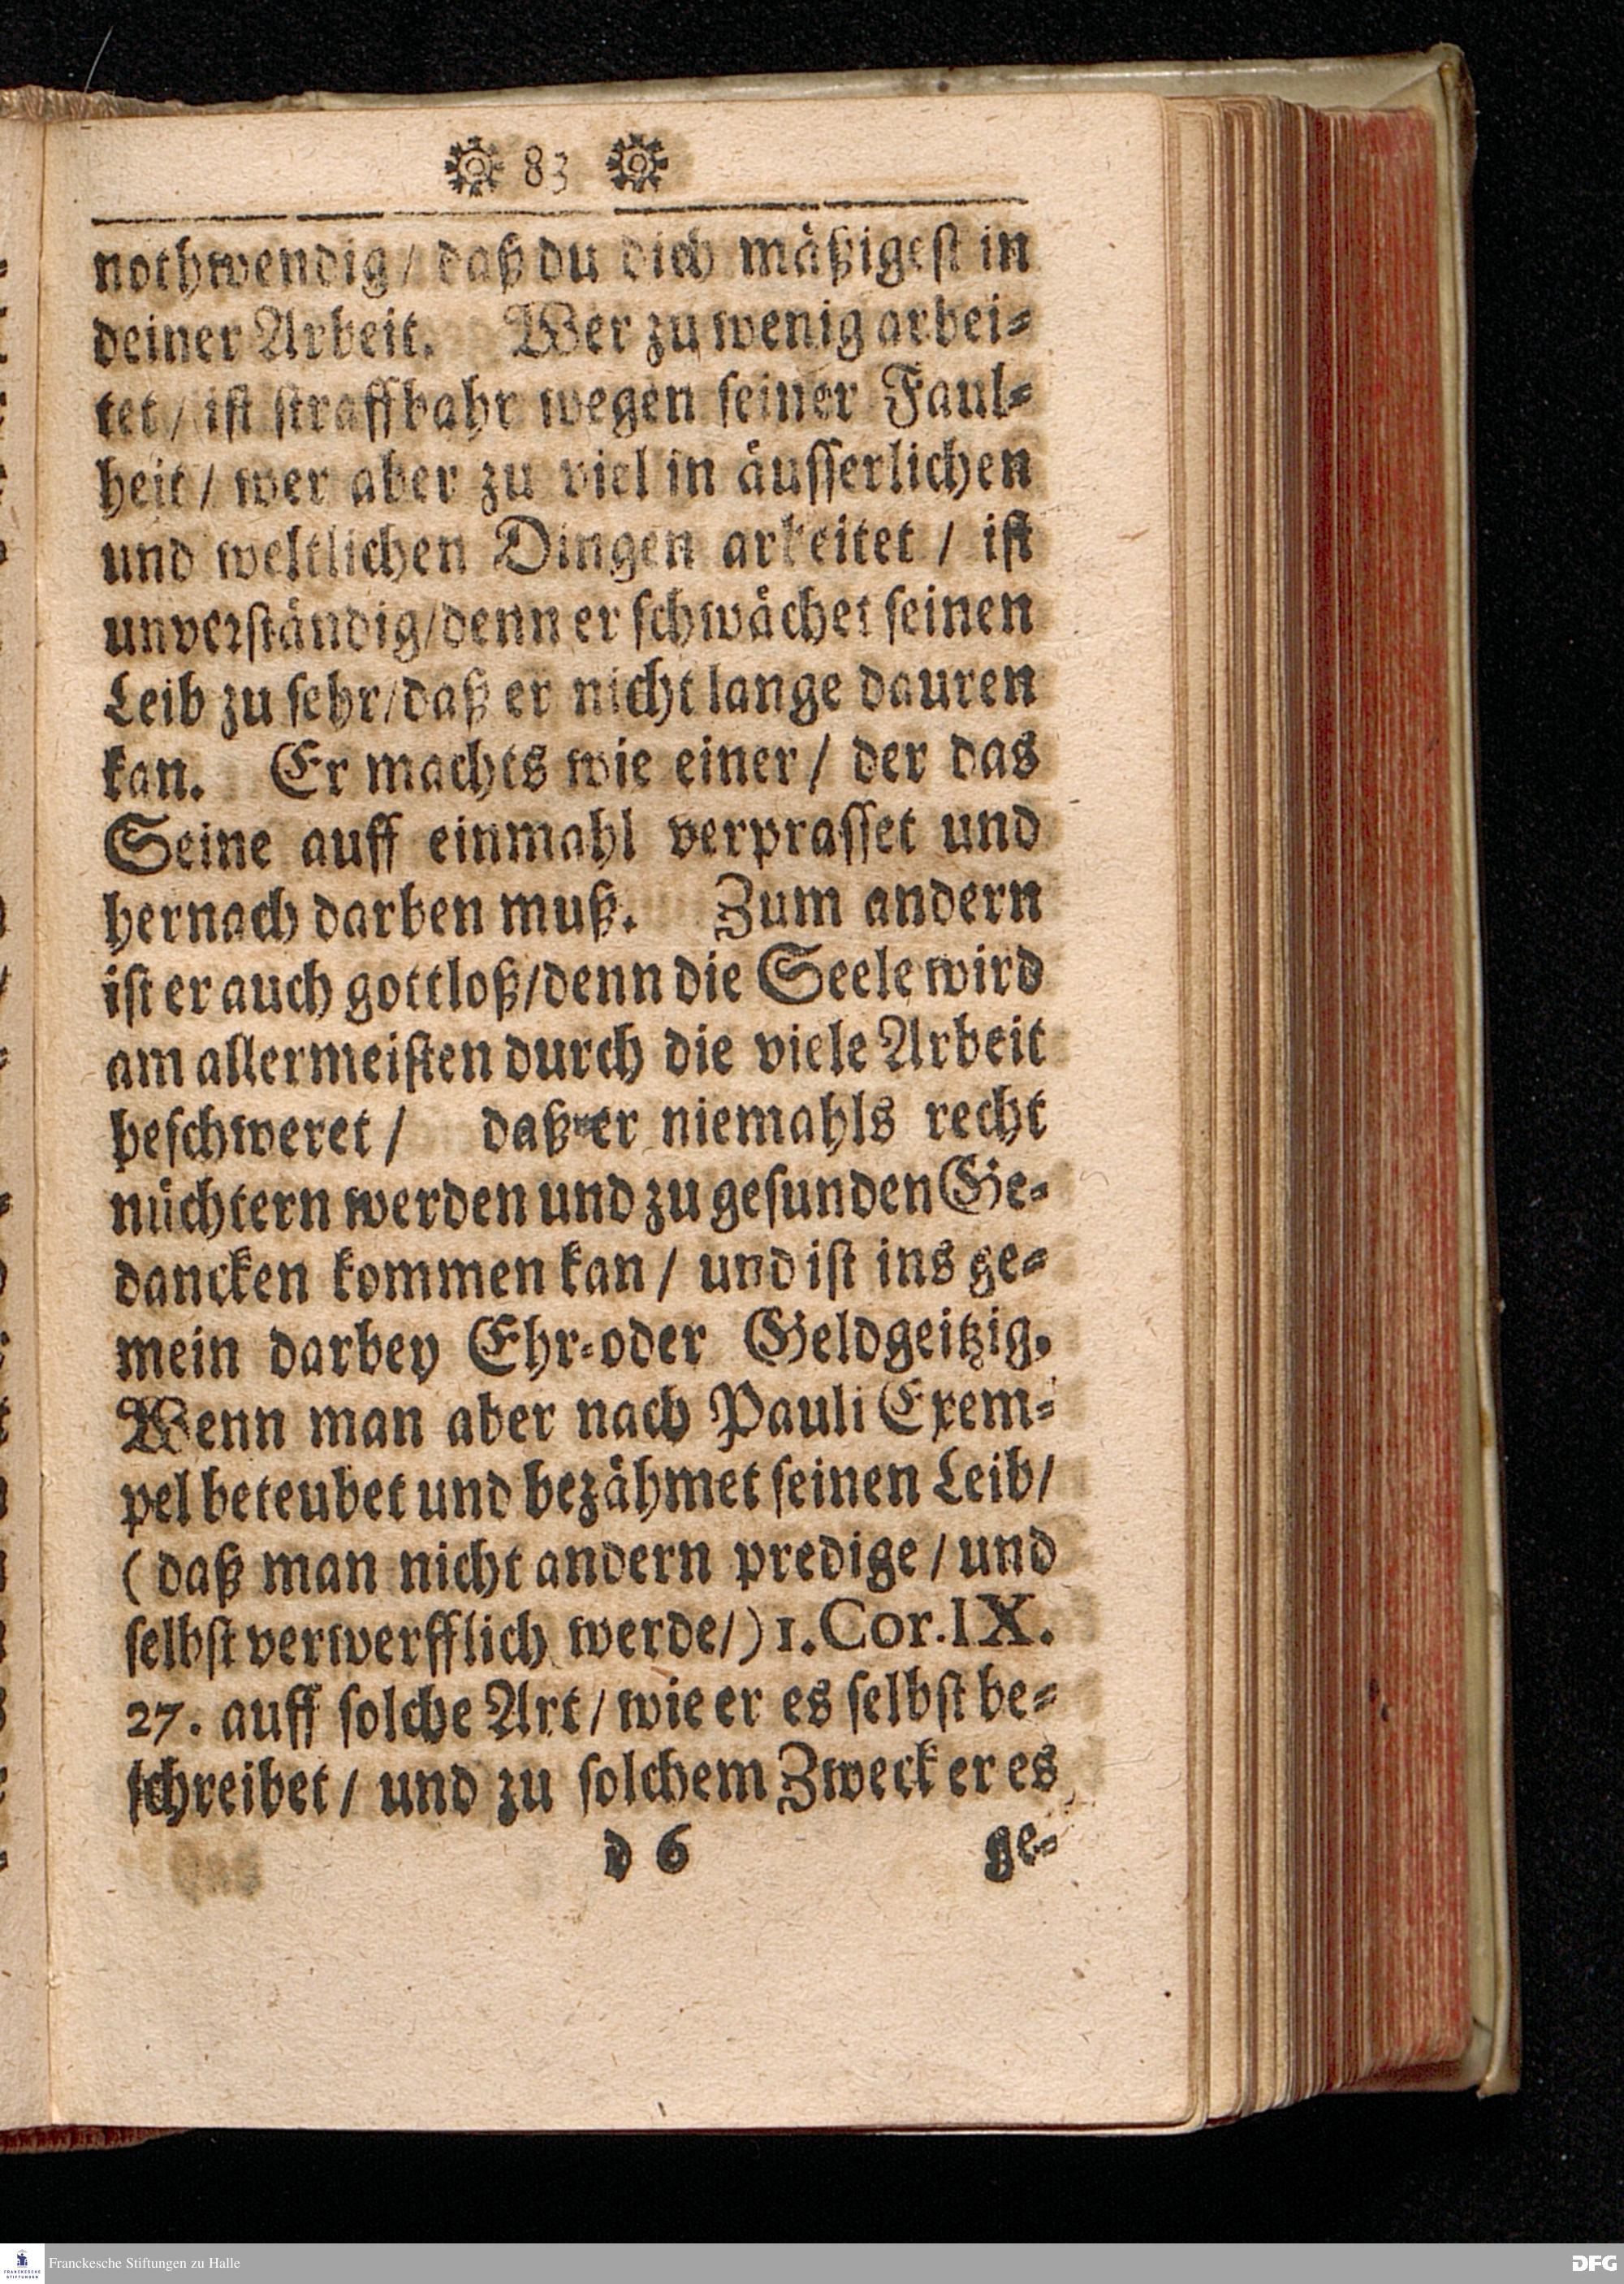 83
nothwendig / daß du dich mäßigest in
deiner Arbeit. Wer zu wenig arbei-
tet / ist straffbahr wegen seiner Faul-
heit / wer aber zu viel in äusserlichen
und weltlichen Dingen arbeitet / ist
unverständig / denn er schwächet seinen
Leib zu sehr / daß er nicht lange dauren
kan. Er machts wie einer / der das
Seine auff einmahl verprasset und
hernach darben muß. Zum andern
ist er auch gottloß / denn die Seele wird
am allermeisten durch die viele Arbeit
beschweret / daß er niemahls recht
nüchtern werden und zu gesunden Ge-
dancken kommen kan / und ist ins ge-
mein darbey Ehr-oder Geldgeitzig.
Wenn man aber nach Pauli Exem-
pel beteubet und bezähmet seinen Leib /
( daß man nicht andern predige / und
selbst verwerfflich werde / ) 1. Cor. IX.
27. auff solche Art / wie er es selbst be-
schreibet / und zu solchem Zweck er es
d 6 ge-
FRANCKESCHE STIFTUNGEN
Franckesche Stiftungen zu Halle
DFG